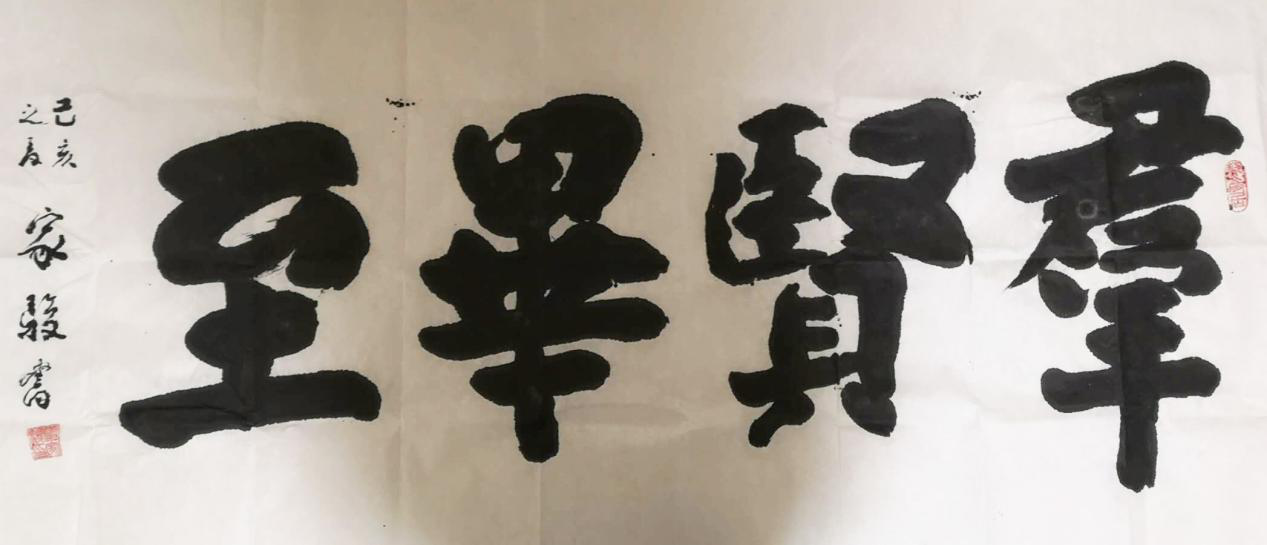 羣賢畢至
己亥
之夏
家駿書